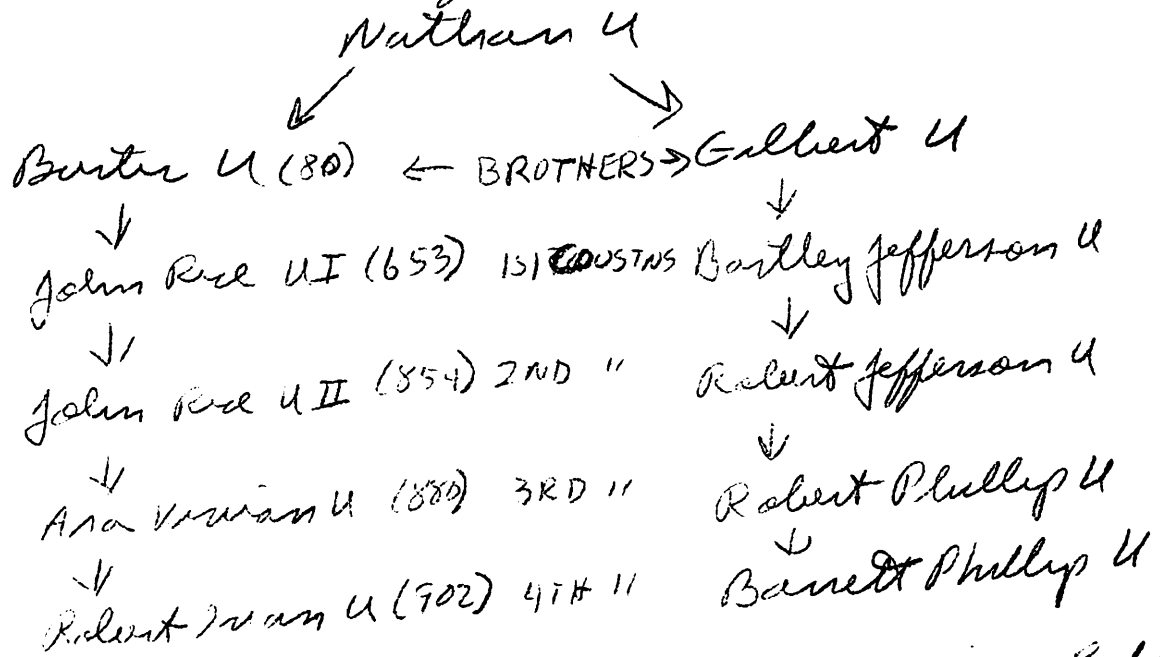 Nathan U
Buster U (80) ← BROTHERS → Gilbert U
John Rice U I (653) 1ST COUSINS Bartley Jefferson U
John Rice U II (854) 2ND " Robert Jefferson U
Asa Vivian U (880) 3RD " Robert Phillip U
Robert Ivan U (902) 4TH " Barrett Phillip U